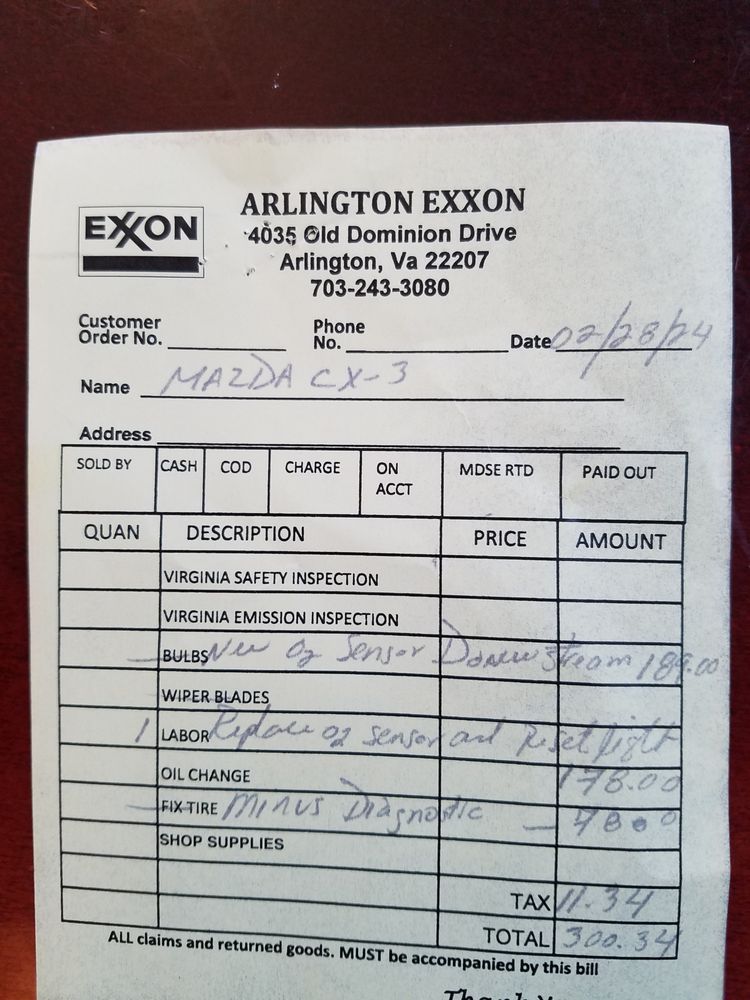 EXXON
ARLINGTON EXXON
4035 Old Dominion Drive
Arlington, Va 22207
703-243-3080
Customer
Order No.
Phone
No.
Date 02/28/24
Name MAZDA CX-3
Address
SOLD BY CASH COD CHARGE ON ACCT MDSE RTD PAID OUT
QUAN DESCRIPTION PRICE AMOUNT
VIRGINIA SAFETY INSPECTION
VIRGINIA EMISSION INSPECTION
BULBS New O2 Sensor Downstream 189.00
WIPER BLADES
1 LABOR Replace O2 sensor and Reset light
OIL CHANGE 178.00
FIX TIRE Minus Diagnostic - 78.00
SHOP SUPPLIES
TAX 11.34
TOTAL 300.34
ALL claims and returned goods. MUST be accompanied by this bill
Thank